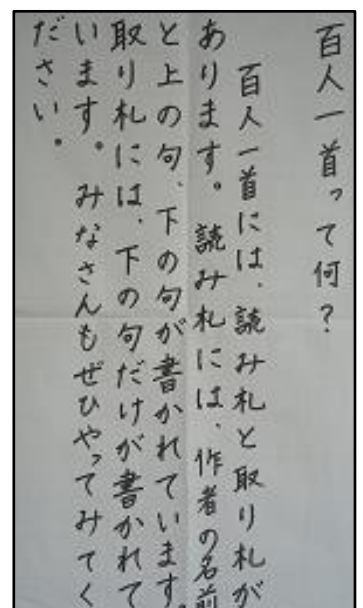 百人一首って何?
百人一首には、読み札と取り札が
あります。読み札には、作者の名前
と上の句、下の句が書かれています。
取り札には、下の句だけが書かれて
います。みなさんもぜひやってみてく
ださい。